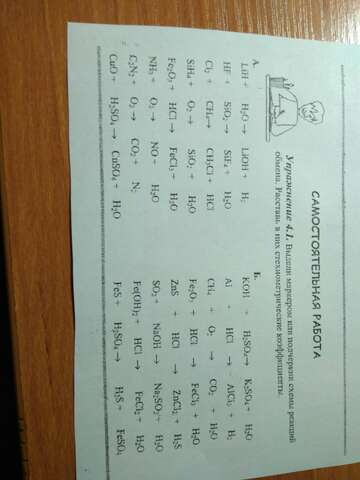 САМОСТОЯТЕЛЬНАЯ РАБОТА
Упражнение 4.1. Выдели маркером или подчеркни схемы реакций
обмена. Расставь в них стехиометрические коэффициенты.
А.
LiH + H₂O → LiOH + H₂
HF + SiO₂ → SiF₄ + H₂O
Cl₂ + CH₄ → CH₃Cl + HCl
SiH₄ + O₂ → SiO₂ + H₂O
Fe₂O₃ + HCl → FeCl₃ + H₂O
NH₃ + O₂ → NO + H₂O
C₂N₂ + O₂ → CO₂ + N₂
CuO + H₂SO₄ → CuSO₄ + H₂O
Б.
KOH + H₂SO₄ → K₂SO₄ + H₂O
Al + HCl → AlCl₃ + H₂
CH₄ + O₂ → CO₂ + H₂O
Fe₂O₃ + HCl → FeCl₃ + H₂O
ZnS + HCl → ZnCl₂ + H₂S
SO₂ + NaOH → Na₂SO₃ + H₂O
Fe(OH)₂ + HCl → FeCl₂ + H₂O
FeS + H₂SO₄ → H₂S + FeSO₄